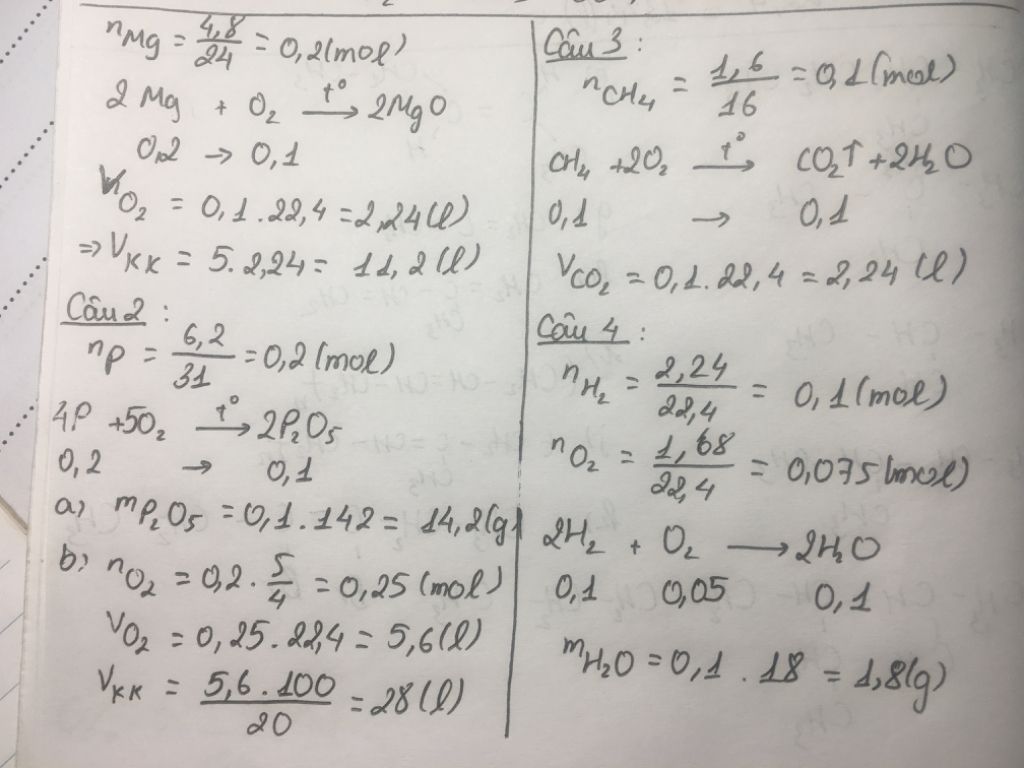 nMg = 4,8/24 = 0,2(mol)
2Mg + O₂ —t°→ 2MgO
0,2 → 0,1
VO₂ = 0,1.22,4 = 2,24(l)
⇒ VKK = 5.2,24 = 11,2(l)
Câu 2 :
nP = 6,2/31 = 0,2(mol)
4P +5O₂ —t°→ 2P₂O₅
0,2 → 0,1
a) mP₂O₅ = 0,1.142 = 14,2(g)
b) nO₂ = 0,2.5/4 = 0,25(mol)
VO₂ = 0,25.22,4 = 5,6(l)
VKK = 5,6.100/20 = 28(l)
Câu 3 :
nCH₄ = 1,6/16 = 0,1(mol)
CH₄ +2O₂ —t°→ CO₂↑ +2H₂O
0,1 → 0,1
VCO₂ = 0,1.22,4 = 2,24(l)
Câu 4 :
nH₂ = 2,24/22,4 = 0,1(mol)
nO₂ = 1,68/22,4 = 0,075(mol)
2H₂ + O₂ → 2H₂O
0,1 0,05 0,1
mH₂O = 0,1 . 18 = 1,8(g)